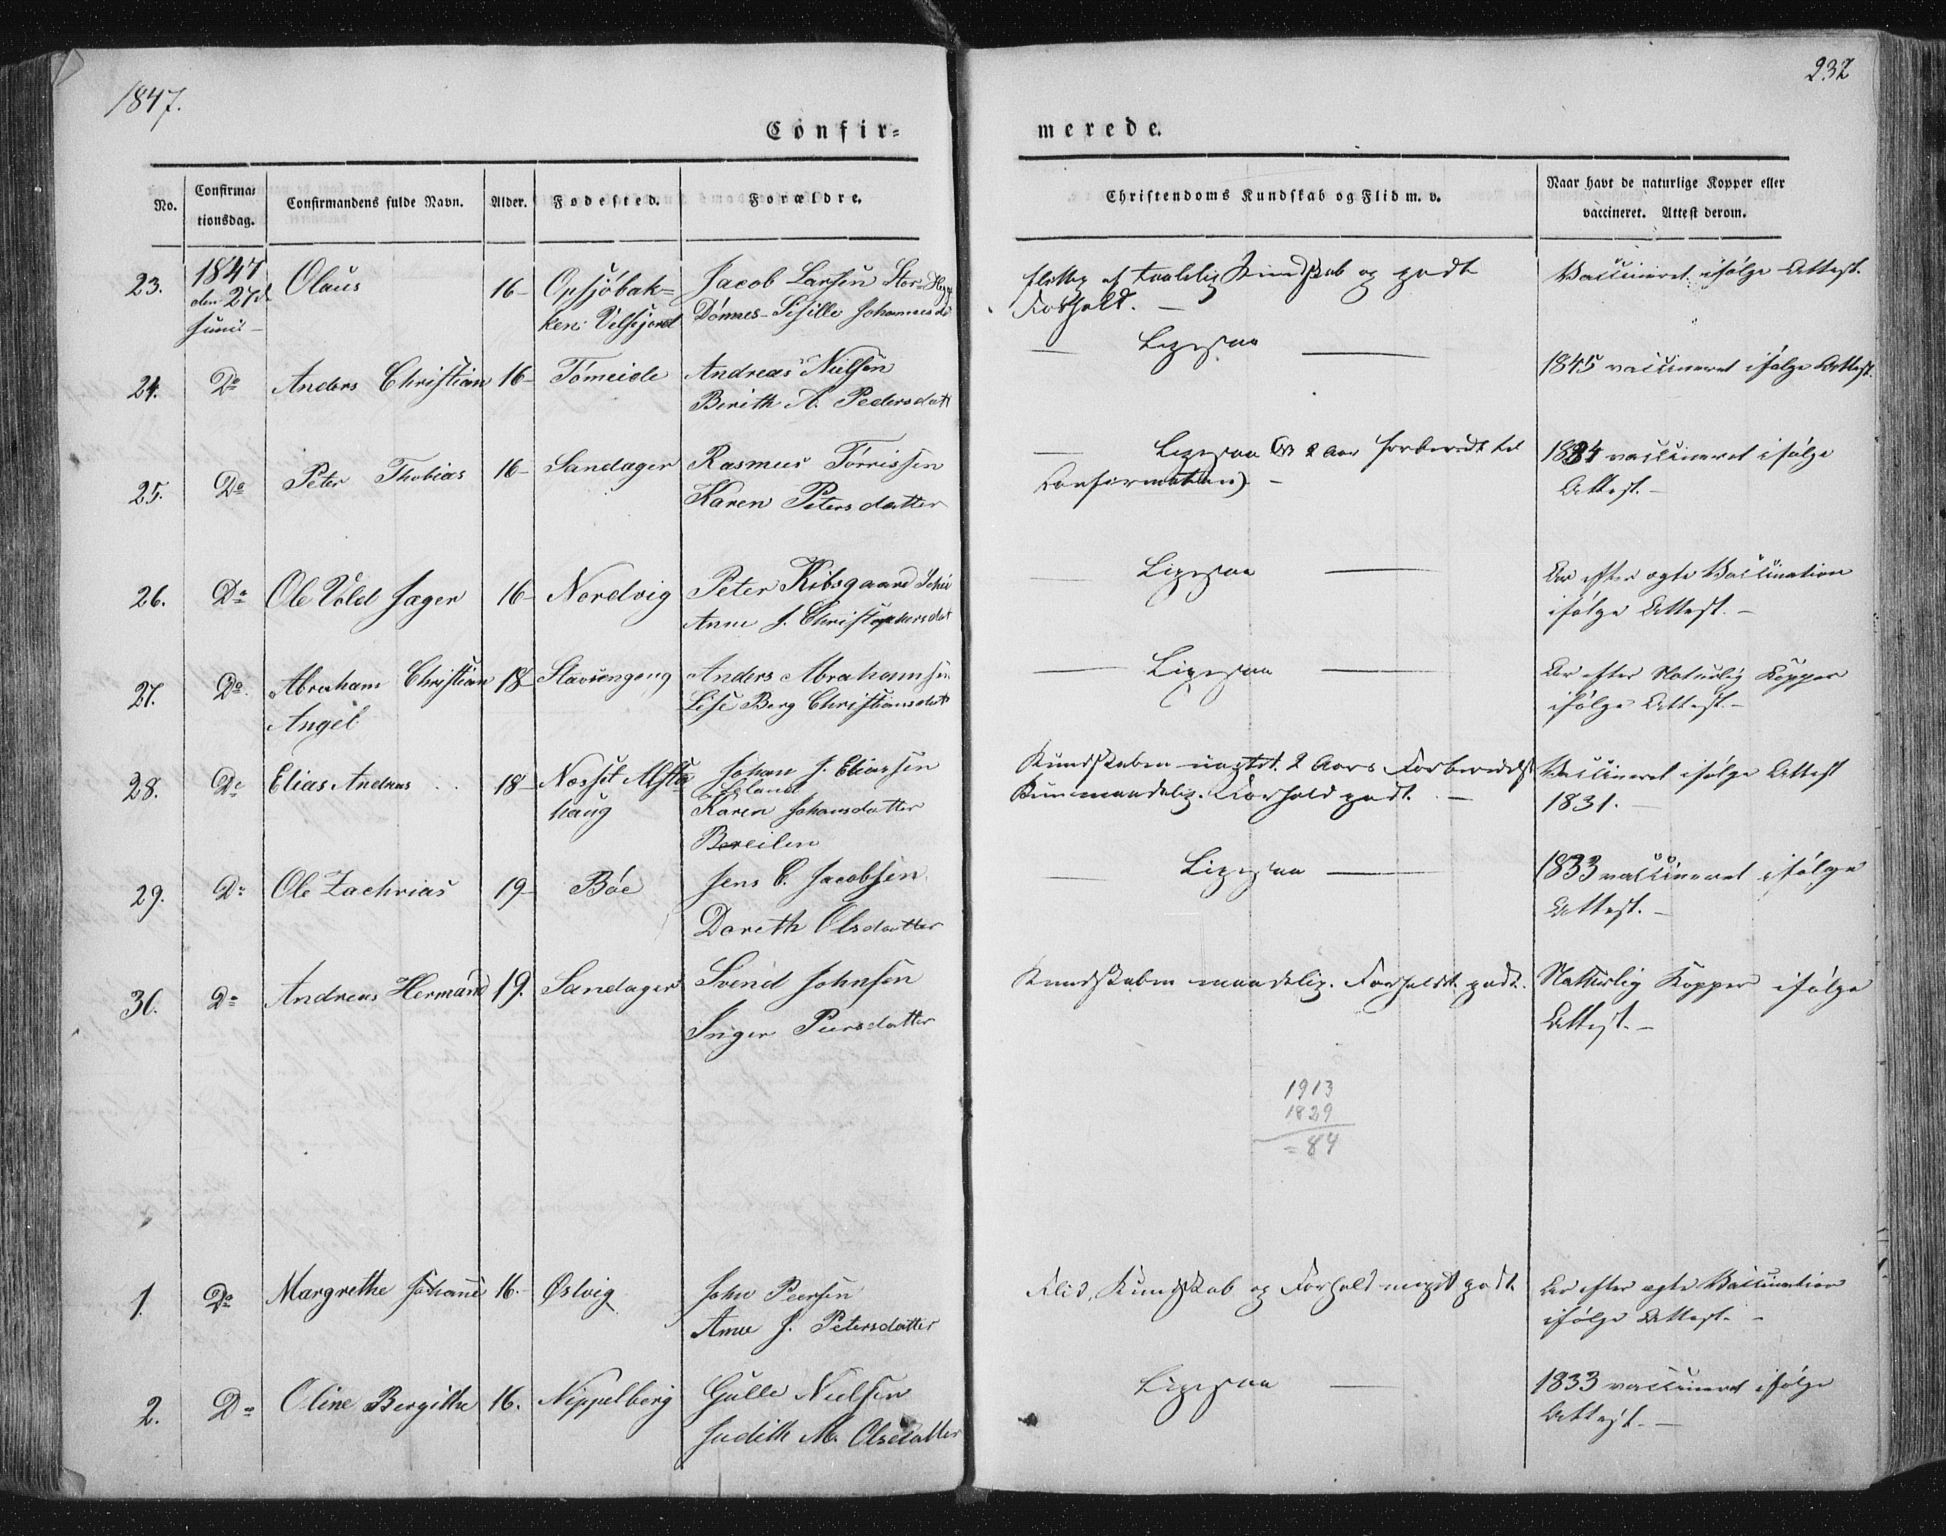 1847.
232
Confir-
merede.
No.
Confirma-
tionsdag.
Confirmandens fulde Navn.
Alder.
Fødested.
Forældre.
Christendoms Kundskab og Flid m. v.
Naar havt de naturlige Kopper eller
vaccineret. Attest derom.
23. 1847 Olaus 16- Opsjøbak- Jacob Larsen
den 27d
Junii
ken: Velfjord Dønnes
af taalelig Kundskab og godt
Forhold. -
Vaccineret ifølge Attest.
24. Do Anders Christian 16- Tømeide Andreas Nielsen
Birith A. Pedersdatt
- Ligesaa -
1845 vaccineret ifølge Attest.
25. Do Peter Thobias 16- Sandager Rasmus Tørrissen
Karen Petersdatter
- Ligesaa 2 Aar forberedt til
Confirmation). -
1834 vaccineret ifølge
Attest. -
26. Do Ole Vold Jæger 16- Nordvig Peter Kibsgaard
Anne J. Christophersdat
- Ligesaa -
Ar efter ægte Vaccination
ifølge Attest. -
27. Do Abraham Christian 18- Anders Abrahamsen
Angel
Lise Berg Christiansdatt
- Ligesaa -
Ar efter Naturlig Kopper
ifølge Attest. -
28. Do Elias Andreas 18- Næsset Alsta
haug
Johan J. Eliassen
Leland
Karen Johansdatter
Kundskaben 2 Aars Forberedelse
maadelig. Forhold godt. -
Vaccineret ifølge Attest
1831. -
29. Do Ole Zachrias 19- Bøe Jens C. Jacobsen
Doreth Olsdatter
- Ligesaa -
1833 vaccineret ifølge
Attest. -
30. Do Andreas Hermand 19. Sandager Svend Johnsen
Inger Peersdatter
Kundskaben maadelig. Forholdet godt.
Naturlig Kopper ifølge
Attest. -
1913
1829
= 84
1. Do Margrethe Johane 16. Østvig John Peersen
Anne J. Petersdatter
Flid, Kundskab og Forhold meget godt
Ar efter ægte Vaccination
ifølge Attest. -
2. Do Oline Bergithe 16. Nippelberg Gulle Nielsen
Judith M. Olsdatter
Ligesaa -
1833 vaccineret ifølge
Attest. -